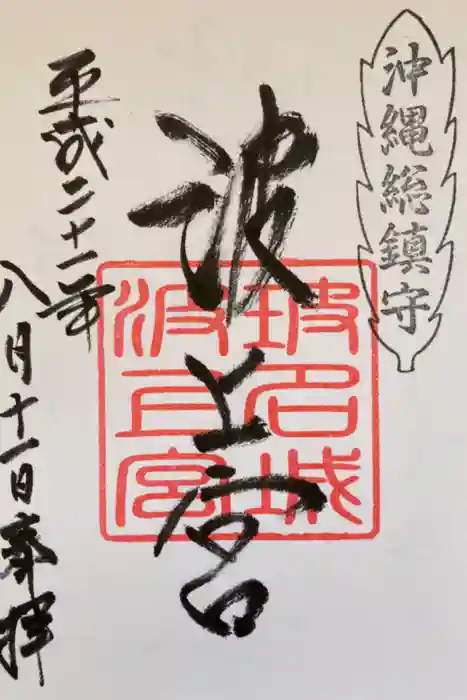 沖縄総鎮守
波上宮
玻名城
波上宮
平成二十一年
八月十一日奉拝